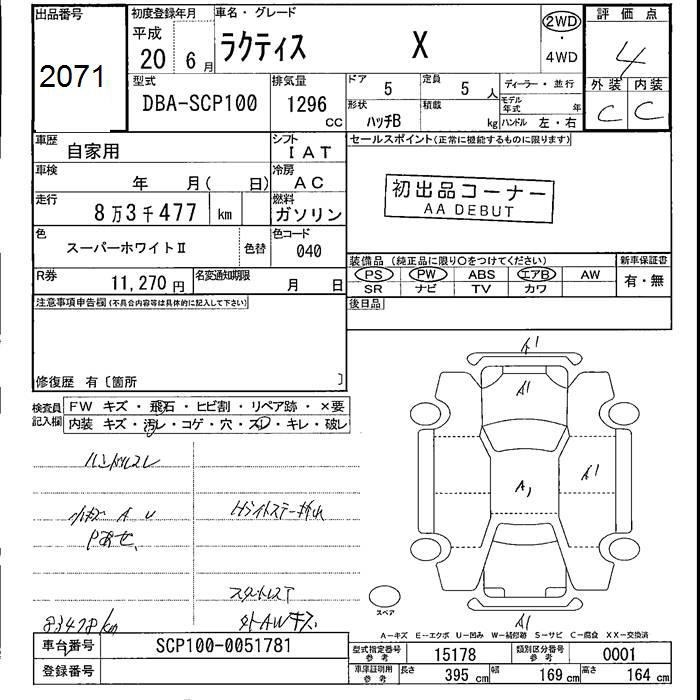 出品番号
2071
初度登録年月
平成
20 6月
車名・グレード
ラクティス X
2WD
・
4WD
評価点
4
外装 内装
C C
型式
DBA-SCP100
排気量
1296
CC
ドア 5
定員 5 人
形状 ハッチB
積載 kg
ディーラー・並行
モデル年式 年
ハンドル 左・右
車歴 自家用
シフト IAT
車検 年 月( 日)
冷房 AC
走行 8万3千477 km
燃料 ガソリン
色 スーパーホワイトⅡ 色替
色コード 040
R券 11,270円
名変通知期限 月 日
セールスポイント(正常に機能するものに限ります)
初出品コーナー
AA DEBUT
装備品 (純正品に限り○をつけてください)
PS PW ABS エアB AW
SR ナビ TV カワ
新車保証書
有・無
後日品
注意事項申告欄(不具合内容等は具体的に記入して下さい)
修復歴 有〔箇所 〕
検査員記入欄
FW キズ・飛石・ヒビ割・リペア跡・×要
内装 キズ・汚レ・コゲ・穴・スレ・キレ・破レ
ハンドルスレ
小キズ A U
Pあせ
Hライトステー折れ
スタットレスT
外AWキズ
83478km
A1
A1
A1
A1
A1
スペア
A−キズ E−エクボ U−凹み W−補修跡 S−サビ C−腐食 XX−交換済
車台番号 SCP100-0051781
登録番号
型式指定番号参考 15178
類別区分番号参考 0001
車庫証明用参考 長さ 395 cm 幅 169 cm 高さ 164 cm